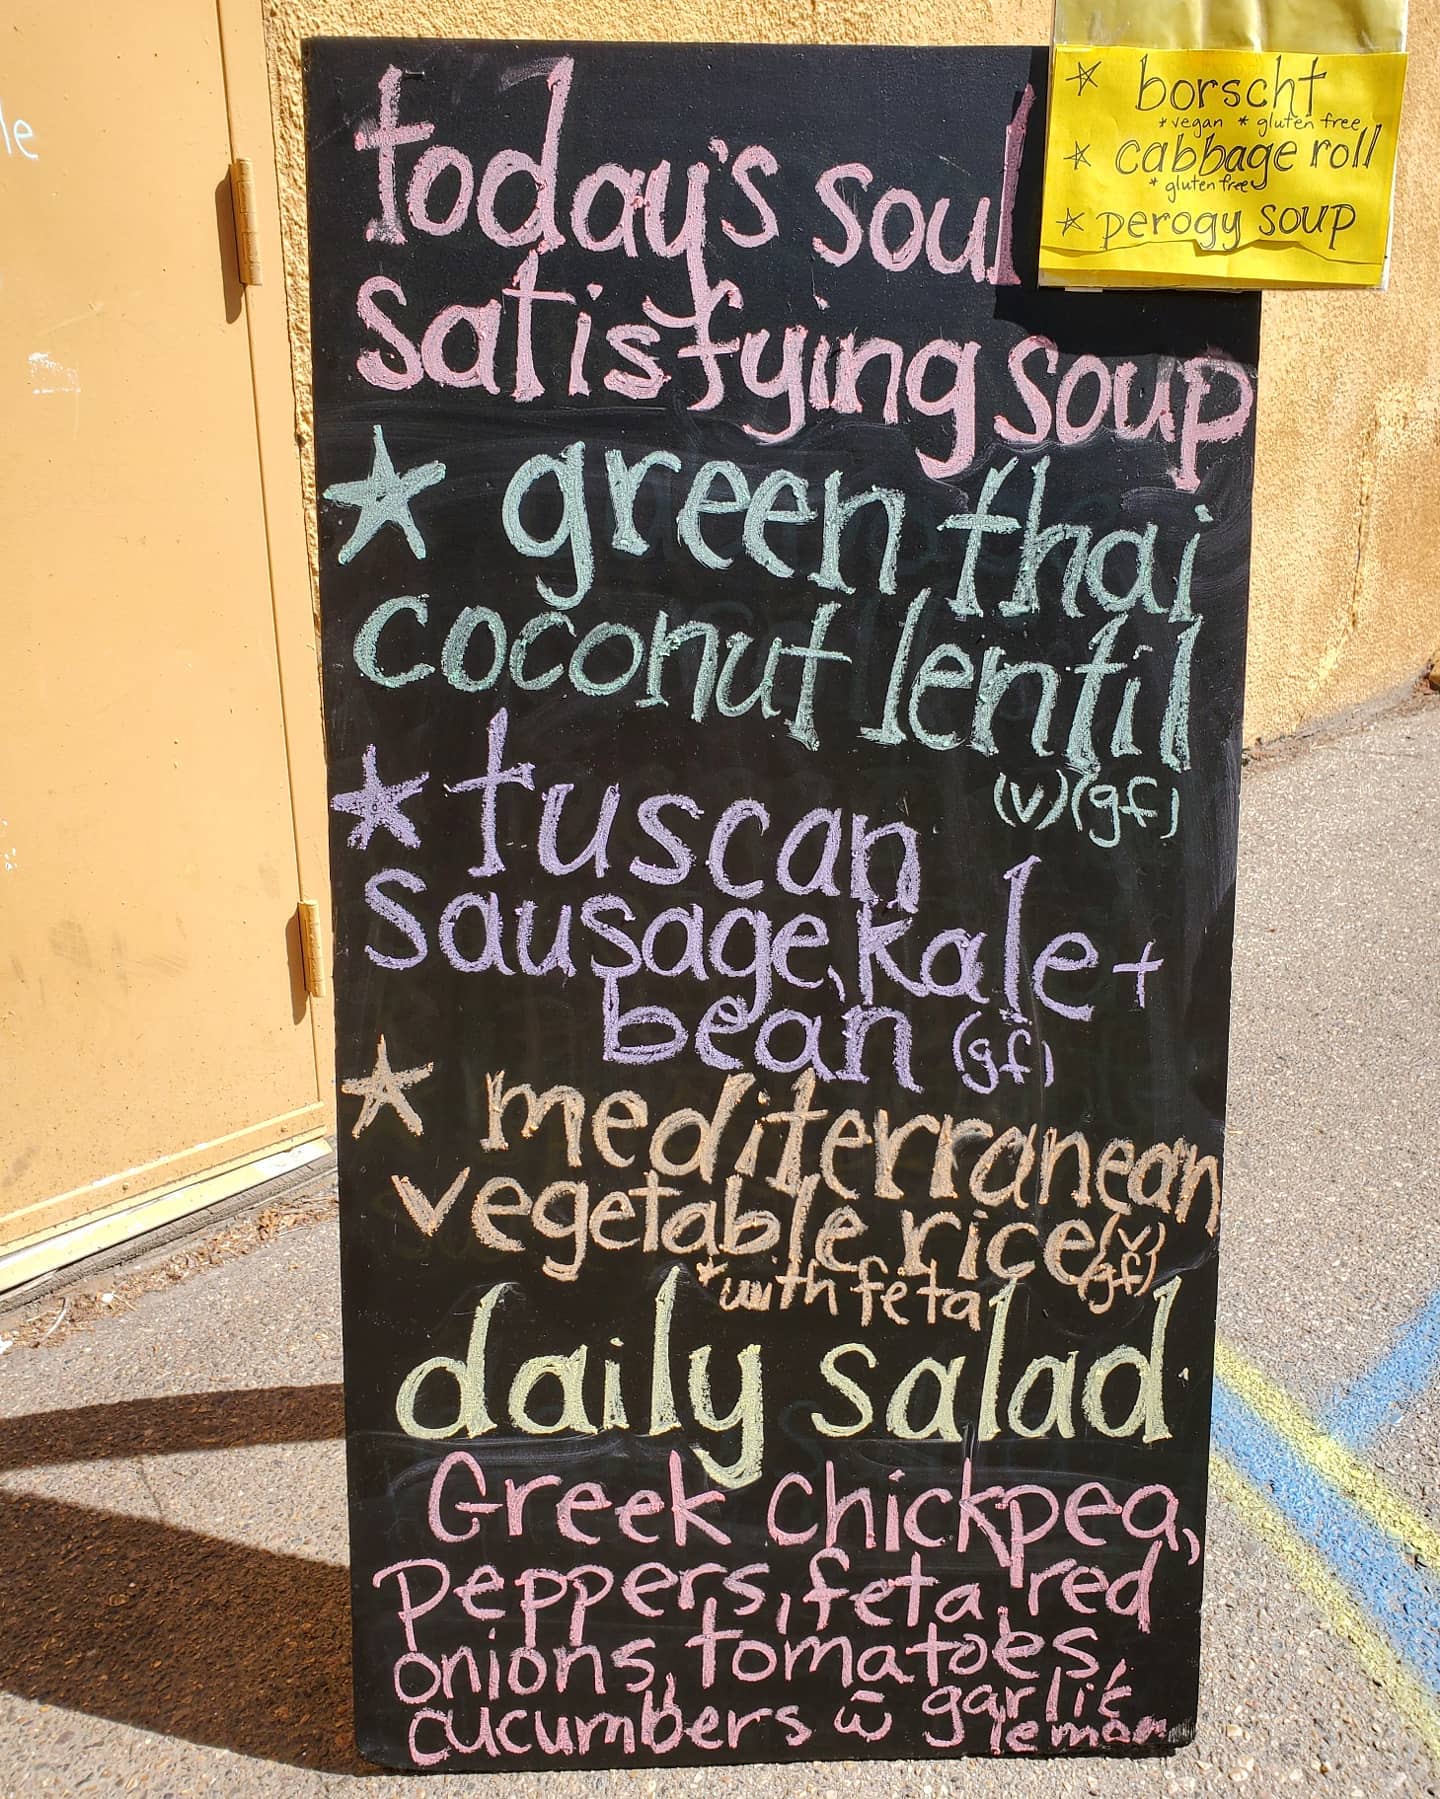 today's soul
satisfying soup
☆ green thai
coconut lentil
(v)(gf)
☆ tuscan
sausage, kale +
bean (gf)
☆ mediterranean
vegetable rice (v)
(gf)
*with feta
daily salad
Greek chickpea,
peppers, feta, red
onions, tomatoes,
cucumbers w garlic
lemon
☆ borscht
*vegan *gluten free
☆ cabbage roll
*gluten free
☆ perogy soup
le